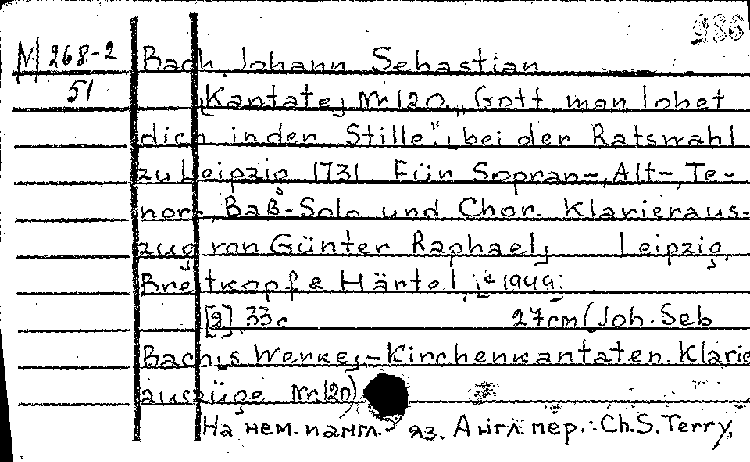 986
M 268-2 Bach, Johann Sebastian
51 [Kantate, Nr. 120. „Gott, man lobet
dich in der Stille", bei der Ratswahl
zu Leipzig 1731. Für Sopran-, Alt-, Te-
nor-, Baß-Solo und Chor. Klavieraus-
zug von Günter Raphael, Leipzig,
Breitkopf & Härtel, 1949.
[2] 33c 27cm (Joh. Seb
Bach's Werke, -Kirchenkantaten. Klavie
auszüge Nr. 120)
На нем. и англ. яз. Англ. пер.: Ch. S. Terry,